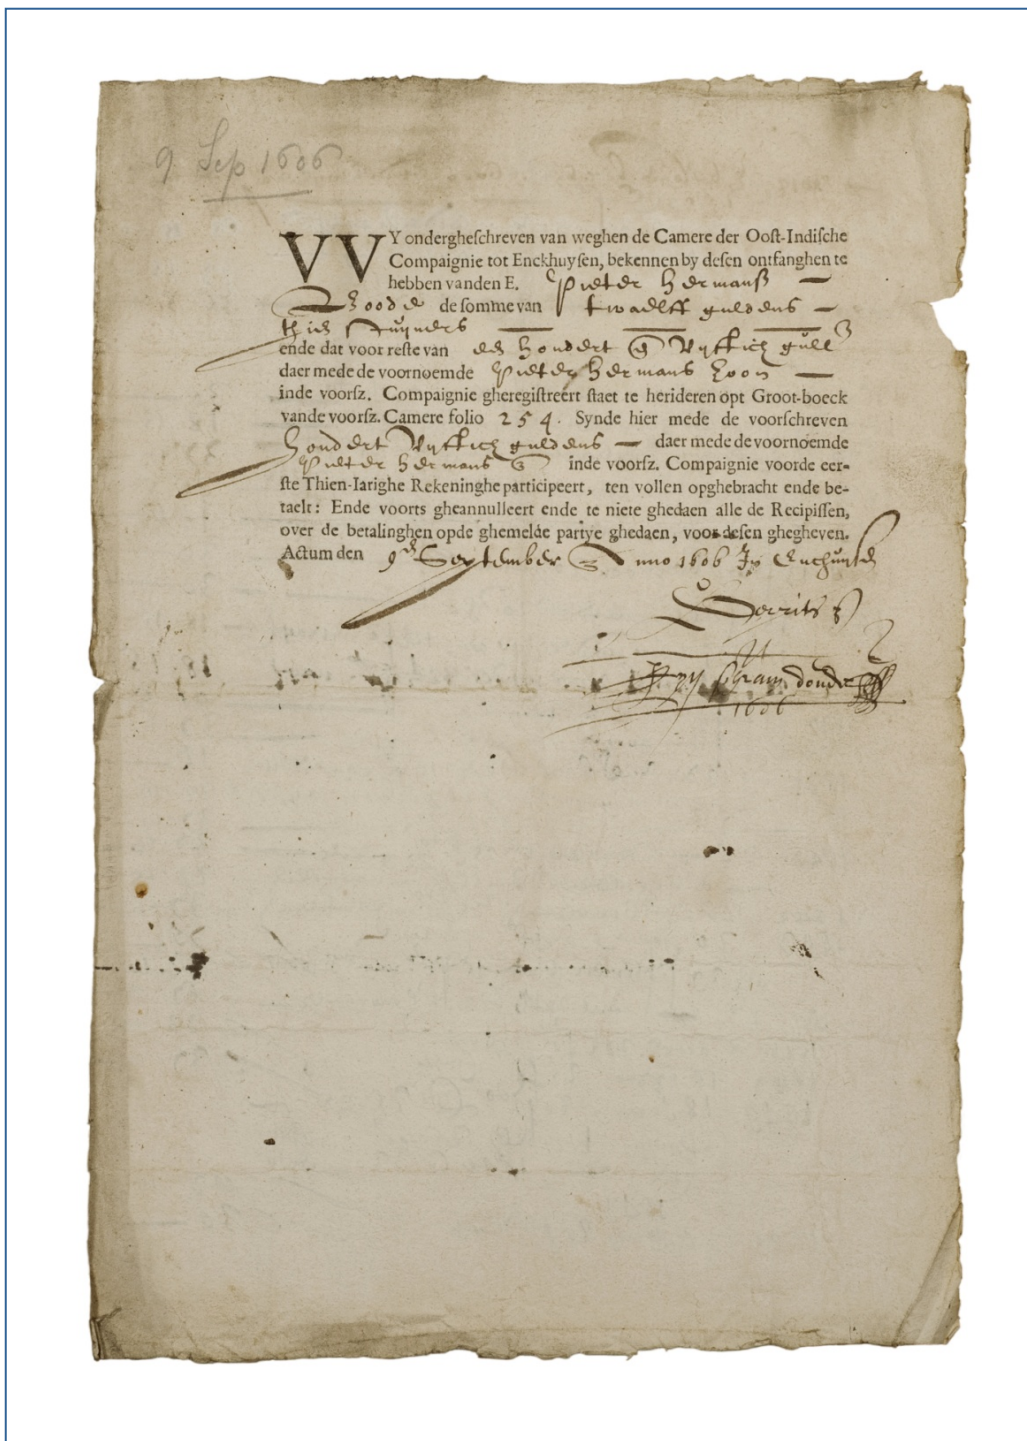 9 Sep 1606
VVY ondergheſchreven van weghen de Camere der Ooſt-Indiſche
Compaignie tot Enckhuyſen, bekennen by deſen ontfanghen te
hebben vanden E. Pieter hermanß
de ſomme van twaelff guldens
thien stuyvers
ende dat voor reſte van een hondert vyftich gull
daer mede de voornoemde Pieter hermans zoon
inde voorſz. Compaignie gheregiſtreert ſtaet te herideren opt Groot-boeck
vande voorſz. Camere folio 254. Synde hier mede de voorſchreven
hondert vyftich guldens daer mede de voornoemde
Pieter hermans inde voorſz. Compaignie voorde eer-
ſte Thien-Iarighe Rekeninghe participeert, ten vollen opghebracht ende be-
taelt: Ende voorts gheannulleert ende te niete ghedaen alle de Recipiſſen,
over de betalinghen opde ghemelde partye ghedaen, voor deſen ghegheven.
Actum den 9 September Anno 1606 In Enchuysen
1606